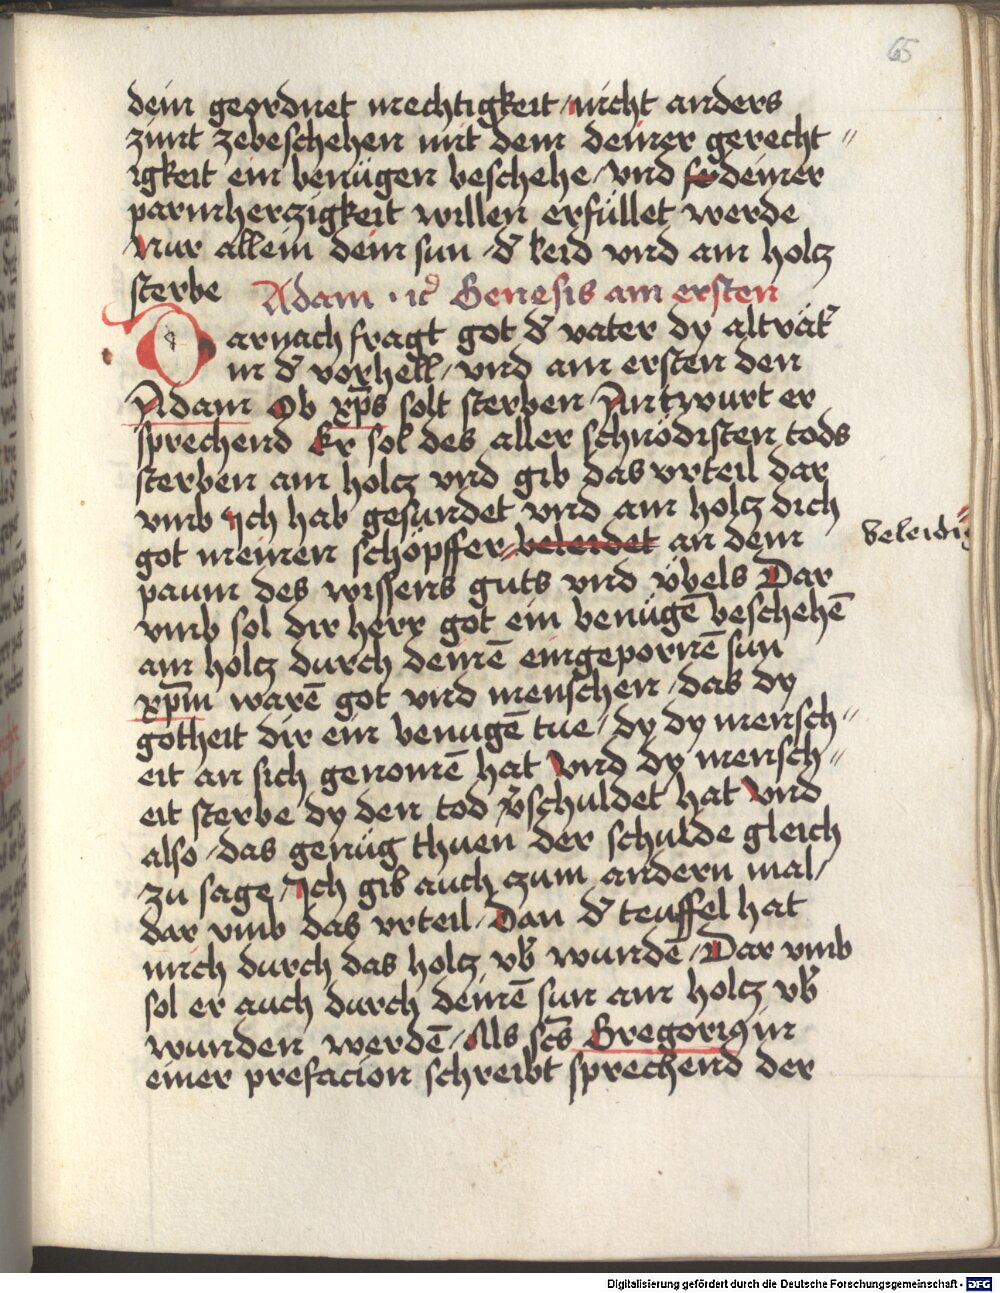 65
dein geordnet mechtigkeit / nicht anders
zimt zebeschehen mit dem deiner gerecht〃
igkeit ein benügen beschehe / vnd so deiner
parmherczigkeit willen erfüllet werde
Nur allein dein sun / d' leid vnd am holcz
sterbe Adam · ic̄ Genesis am ersten
Darnach fragt got d' vater dy altvät'
in d' vorhell / vnd am ersten den
Adam Ob xp̄s solt sterben / Antwurt er
sprechend Er sol des aller schnödisten tods
sterben am holcz vnd gib das vrteil dar
vmb Ich hab gesundet vnd am holcz dich
got meinen schöpffer beleidet an dem
beleidig
paum des wissens guts vnd übels Dar
vmb sol dir herr got ein benügē beschehē
am holcz durch deinē eingepornē sun
xp̄m warē got vnd menschen / das dy
gotheit dir ein benugē tue / dy dy mensch〃
eit an sich genomē hat Vnd dy mensch〃
eit sterbe dy den tod v'schuldet hat Vnd
also / das genüg thuen der schulde gleich
zu sage / Ich gib auch czum andern mal /
dar vmb das vrteil / Dan d' teuffel hat
mich durch das holcz vb' wundē / Dar vmb
sol er auch durch deinē sun am holcz vb'
wunden werdē / Als sc̄s Gregori9 in
einer prefacion schreibt sprechend der
Digitalisierung gefördert durch die Deutsche Forschungsgemeinschaft - DFG